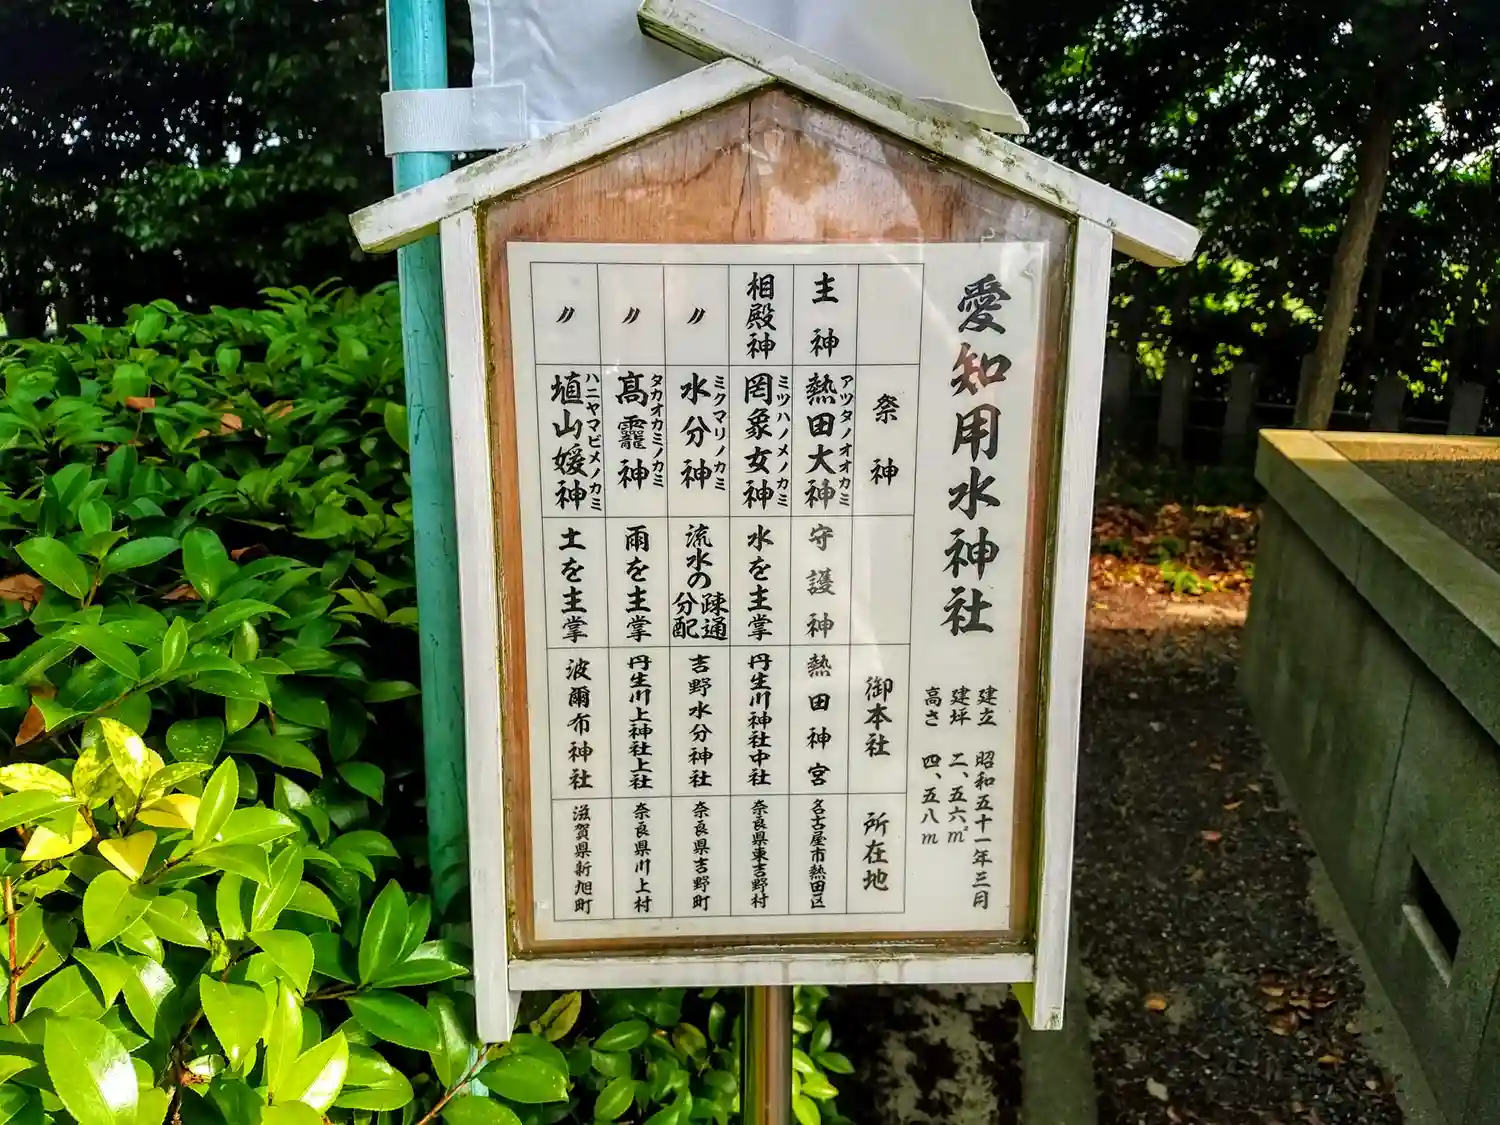 愛知用水神社
建立 昭和五十一年三月
建坪 二、五六㎡
高さ 四、五八m
祭神
御本社
所在地
主神
熱田大神
アツタノオオカミ
守護神
熱田神宮
名古屋市熱田区
相殿神
罔象女神
ミツハノメノカミ
水を主掌
丹生川神社中社
奈良県東吉野村
〃
水分神
ミクマリノカミ
流水の疎通分配
吉野水分神社
奈良県吉野町
〃
高龗神
タカオカミノカミ
雨を主掌
丹生川上神社上社
奈良県川上村
〃
埴山媛神
ハニヤマビメノカミ
土を主掌
波爾布神社
滋賀県新旭町